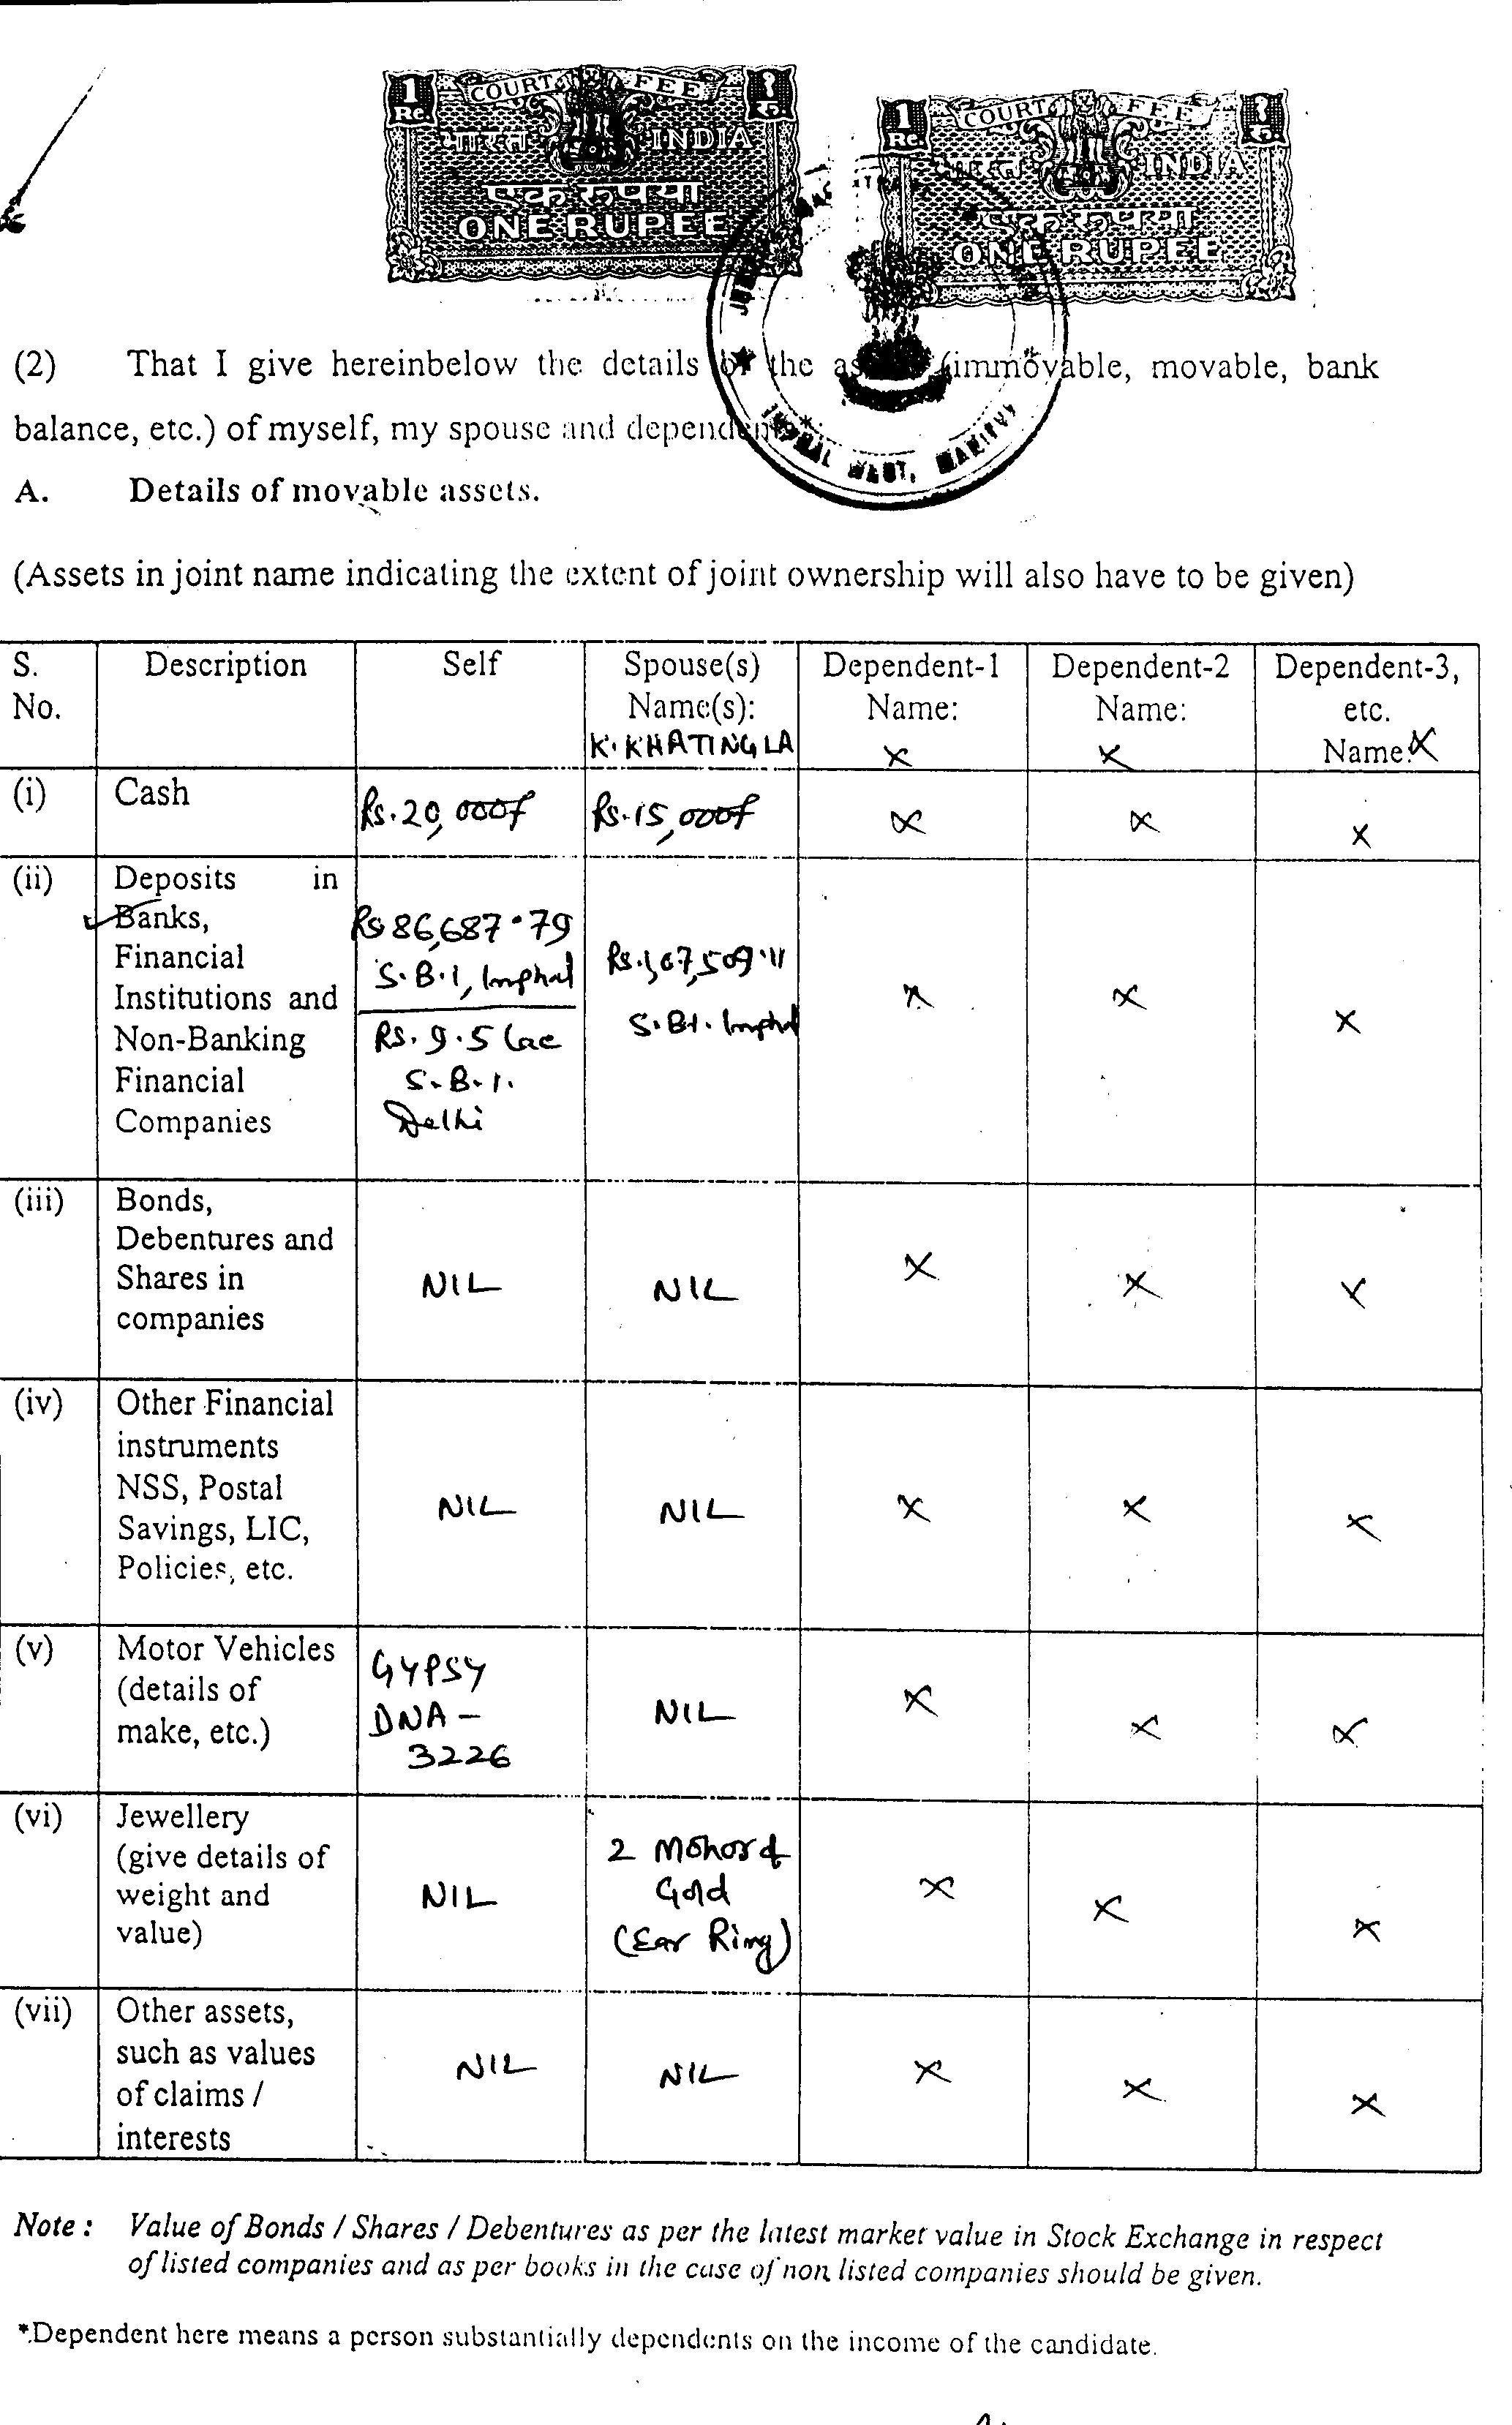 1 COURT FEE १
Re. रु.
भारत INDIA
एक रुपया
ONE RUPEE
1 COURT FEE १
Re. रु.
भारत INDIA
एक रुपया
ONE RUPEE
IMPHAL WEST, MANIPUR
(2) That I give hereinbelow the details the (immovable, movable, bank
balance, etc.) of myself, my spouse and
A. Details of movable assets.
(Assets in joint name indicating the extent of joint ownership will also have to be given)
S. No. Description Self Spouse(s) Name(s): K. KHATINGLA Dependent-1 Name: X Dependent-2 Name: X Dependent-3, etc. Name: X
(i) Cash Rs. 20,000/ Rs. 15,000/ X X X
(ii) Deposits in
Banks,
Financial
Institutions and
Non-Banking
Financial
Companies
Rs 86,687.79
S.B.I, Imphal
Rs. 9.5 Lac
S.B.I.
Delhi
Rs. 1,67,509.11
S.B.I. Imphal
X X X
(iii) Bonds,
Debentures and
Shares in
companies
NIL NIL X X X
(iv) Other Financial
instruments
NSS, Postal
Savings, LIC,
Policies, etc.
NIL NIL X X X
(v) Motor Vehicles
(details of
make, etc.)
GYPSY
DNA -
3226
NIL X X X
(vi) Jewellery
(give details of
weight and
value)
NIL
2 Mohor of
Gold
(Ear Ring)
X X X
(vii) Other assets,
such as values
of claims /
interests
NIL NIL X X X
Note : Value of Bonds / Shares / Debentures as per the latest market value in Stock Exchange in respect
of listed companies and as per books in the case of non listed companies should be given.
*Dependent here means a person substantially dependents on the income of the candidate.